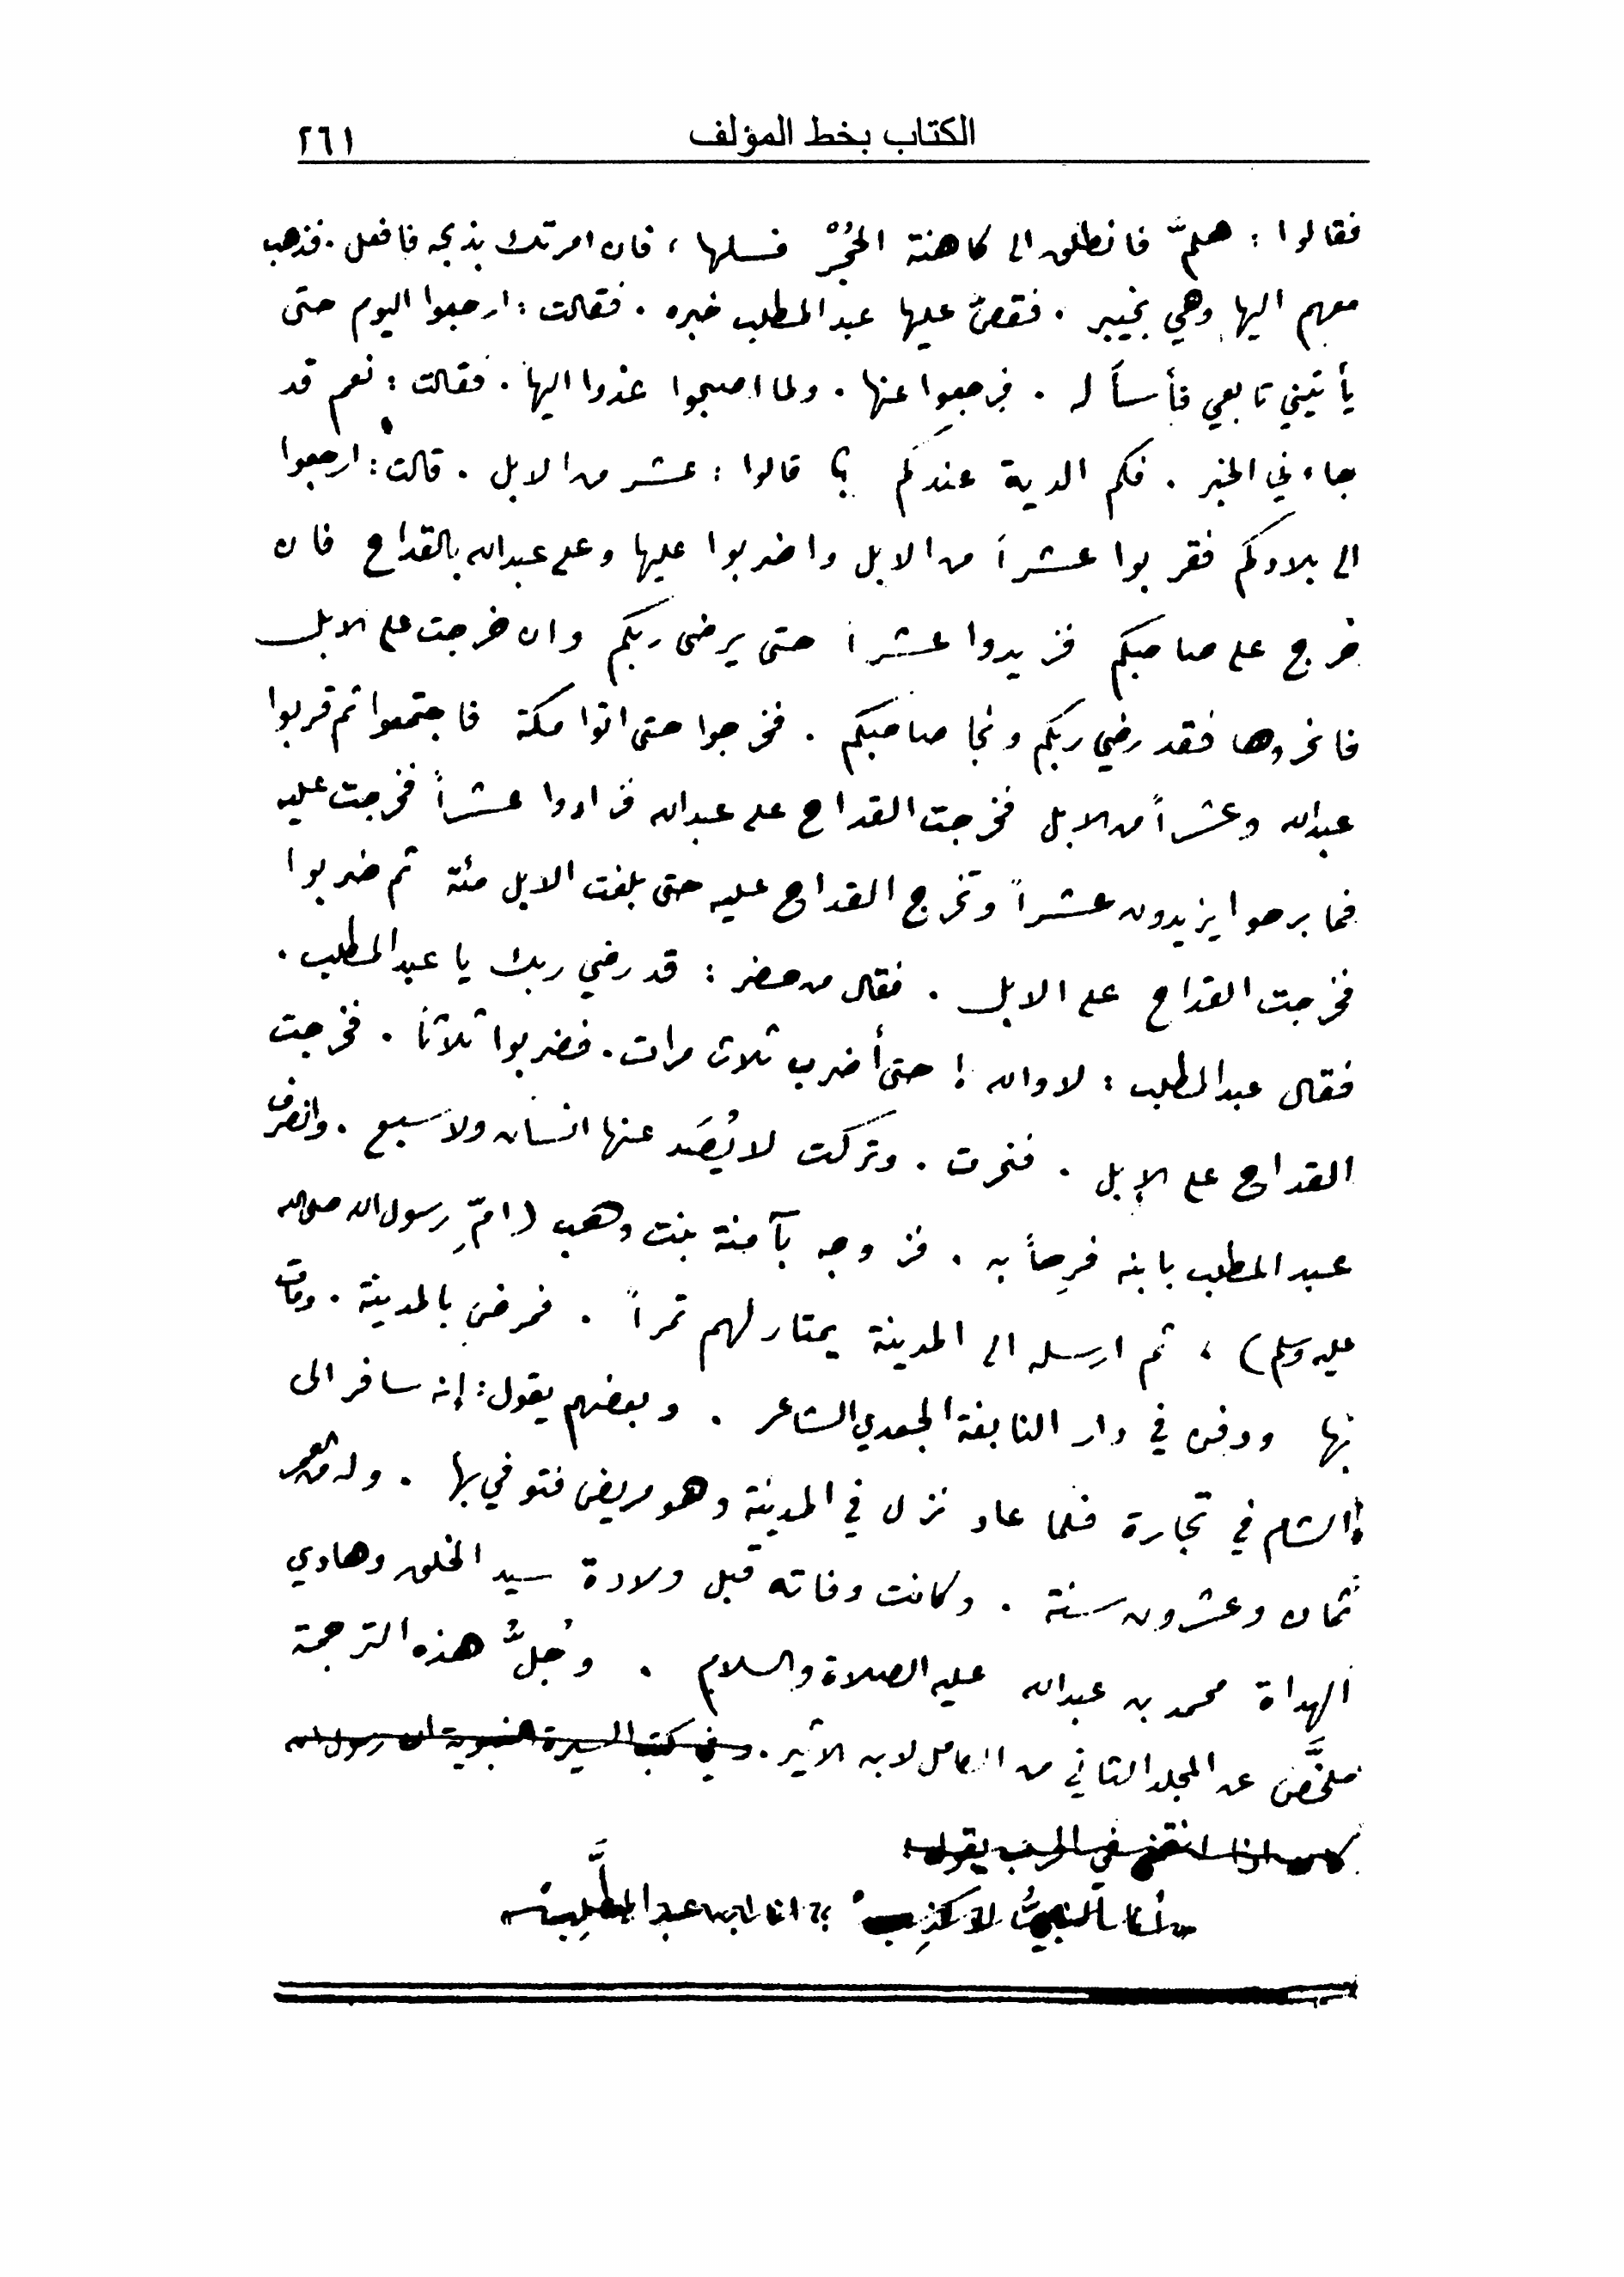 الكتاب بخط المؤلف ٢٦١
فقالوا : هلمَّ فانطلق الى كاهنة الحُجْر فسلها ، فان امرتك بذبحه فافعل . فذهب
معهم اليها وهي بخيبر . فقصَّ عليها عبد المطلب خبره . فقالت : ارجعوا اليوم حتى
يأتيني تابعي فأسأله . فرجعوا عنها . ولما اصبحوا غدوا اليها . فقالت : نعم قد
جاءني الخبر . فكم الدية عندكم ؟ قالوا : عشر من الابل . قالت : ارجعوا
الى بلادكم فقربوا عشراً من الابل واضربوا عليها وعلى عبدالله بالقداح فان
خرج على صاحبكم فزيدوا عشراً حتى يرضى ربكم وان خرجت على الابل
فانحروها فقد رضي ربكم ونجا صاحبكم . فخرجوا حتى اتوا مكة فاجتمعوا ثم قربوا
عبدالله وعشراً من الابل فخرجت القداح على عبدالله فزادوا عشراً فخرجت عليه
فما برحوا يزيدون عشراً وتخرج القداح عليه حتى بلغت الابل مئة ثم ضربوا
فخرجت القداح على الابل . فقال من حضر : قد رضي ربك يا عبد المطلب .
فقال عبد المطلب : لا والله ! حتى أضرب ثلاث مرات . فضربوا ثلاثا . فخرجت
القداح على الإبل . فنحرت . وتركت لا يُصَد عنها انسان ولا سبع . وانصرف
عبد المطلب بابنه فرِحاً به . فزوجه بآمنة بنت وهب (امِّ رسول الله صلى الله
عليه وسلم) ، ثم ارسله الى المدينة يمتار لهم تمراً . فمرض بالمدينة . ومات
بها ودفن في دار النابغة الجعدي الشاعر . وبعضهم يقول : إنه سافر الى
الشام في تجارة فلما عاد نزل في المدينة وهو مريض فتوفي بها . وله من العمر
ثمان وعشرون سنة . وكانت وفاته قبل ولادة سيد الخلق وهادي
الهداة محمد بن عبدالله عليه الصلاة والسلام . وجُلُّ هذه الترجمة
ملخَّص عن المجلد الثاني من الكامل لابن الاثير . وفي كتب السيرة النبوية ان رسول الله
كان اذا انتمى في الحرب يقول :
أنا النبيُّ لا كذِبْ ؛ انا ابن عبد المطَّلِبْ